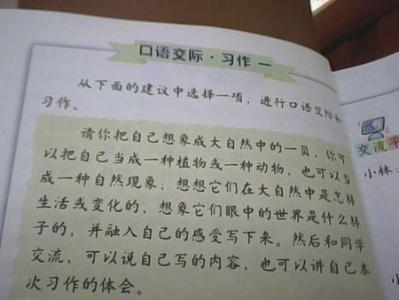 口语交际·习作一
从下面的建议中选择一项，进行口语交际和
习作。
请你把自己想象成大自然中的一员，你可
以把自己当成一种植物或一种动物，也可以当
成一种自然现象；想想它们在大自然中是怎样
生活或变化的，想象它们眼中的世界是什么样
子的，并融入自己的感受写下来。然后和同学
交流，可以说自己写的内容，也可以讲自己本
次习作的体会。
交流平
小林：